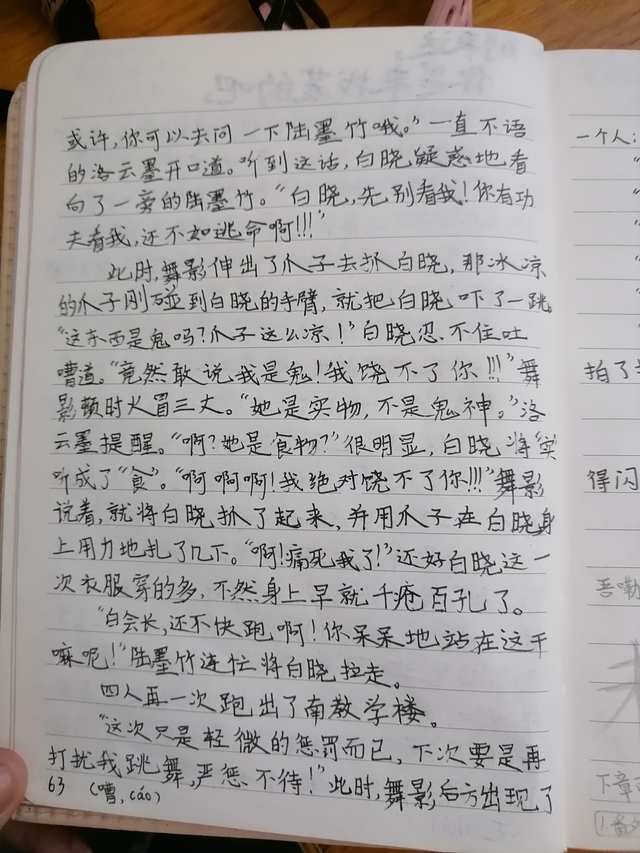 或许,你可以去问一下陆墨竹哦。”一直不语
的洛云墨开口道。听到这话,白晓疑惑地看
向了一旁的陆墨竹。“白晓,先别看我!你有功
夫看我,还不如逃命啊!!!”
此时,舞影伸出了爪子去抓白晓,那冰凉
的爪子刚碰到白晓的手臂,就把白晓吓了一跳。
“这东西是鬼吗?爪子这么凉!”白晓忍不住吐
嘈道。“竟然敢说我是鬼!我饶不了你!!!”舞
影顿时火冒三丈。“她是实物,不是鬼神。”洛
云墨提醒。“啊?她是食物?”很明显,白晓将“实”
听成了“食”。“啊啊啊!我绝对饶不了你!!!”舞影
说着,就将白晓抓了起来,并用爪子在白晓身
上用力地扎了几下。“啊!痛死我了!”还好白晓这一
次衣服穿的多,不然身上早就千疮百孔了。
“白会长,还不快跑啊!你呆呆地站在这干
嘛呢!”陆墨竹连忙将白晓拉走。
四人再一次跑出了南教学楼。
“这次只是轻微的惩罚而已,下次要是再
打扰我跳舞,严惩不待!”此时,舞影后方出现了
63 (嘈,cáo)
一个人:
拍了
得闪
吾嘞
下章